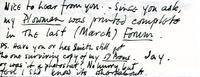 Nice to hear from you. - Since you ask,
my Plowmen was printed complete
in The last (March) Forum.
PS. Have you or has Smith still got
the one surviving copy of my Day.
or was it a photostat. No hurry but